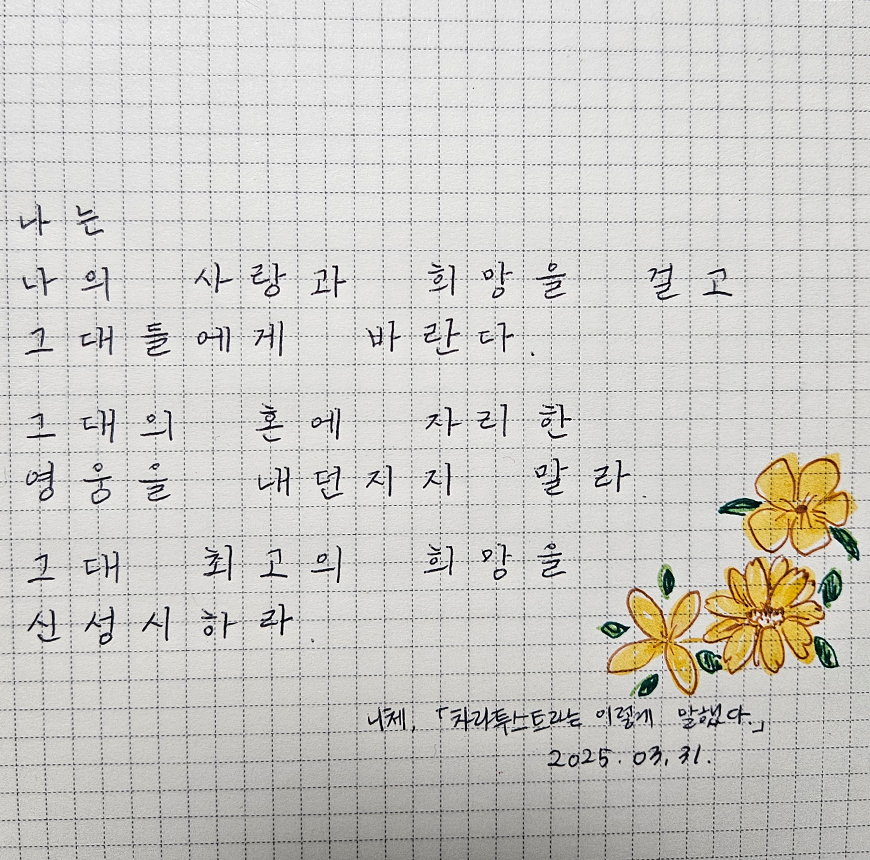 나는
나의 사랑과 희망을 걸고
그대들에게 바란다.
그대의 혼에 자리한
영웅을 내던지지 말라.
그대 최고의 희망을
신성시하라.
니체, 「차라투스트라는 이렇게 말했다.」
2025. 03. 31.